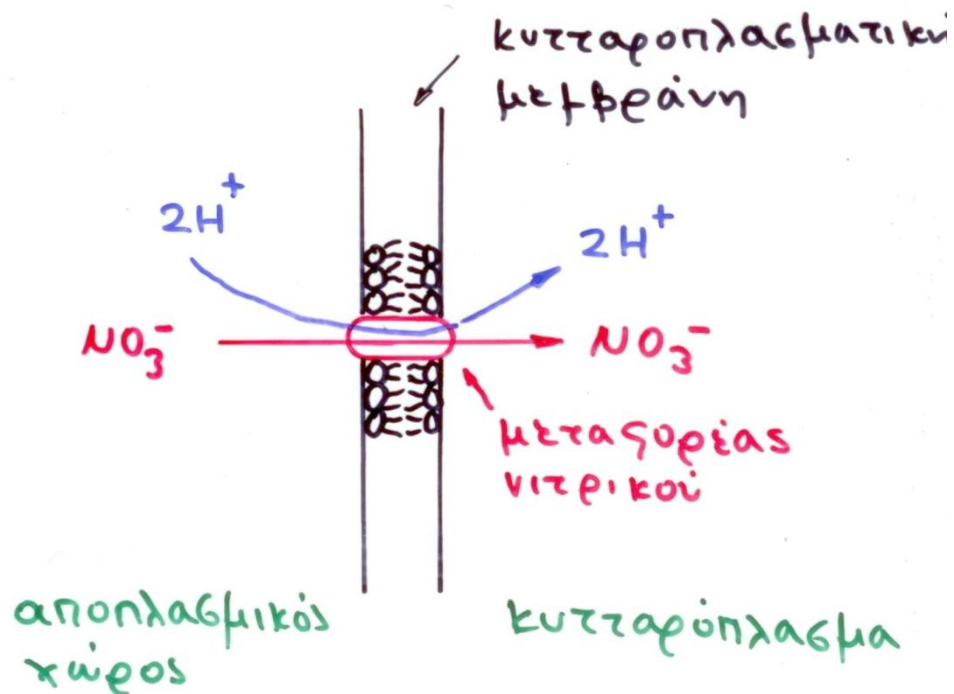 κυτταροπλασματική
μεμβράνη
2H⁺
2H⁺
NO₃⁻
NO₃⁻
μεταφορέας
νιτρικού
αποπλασμικός
χώρος
κυτταρόπλασμα